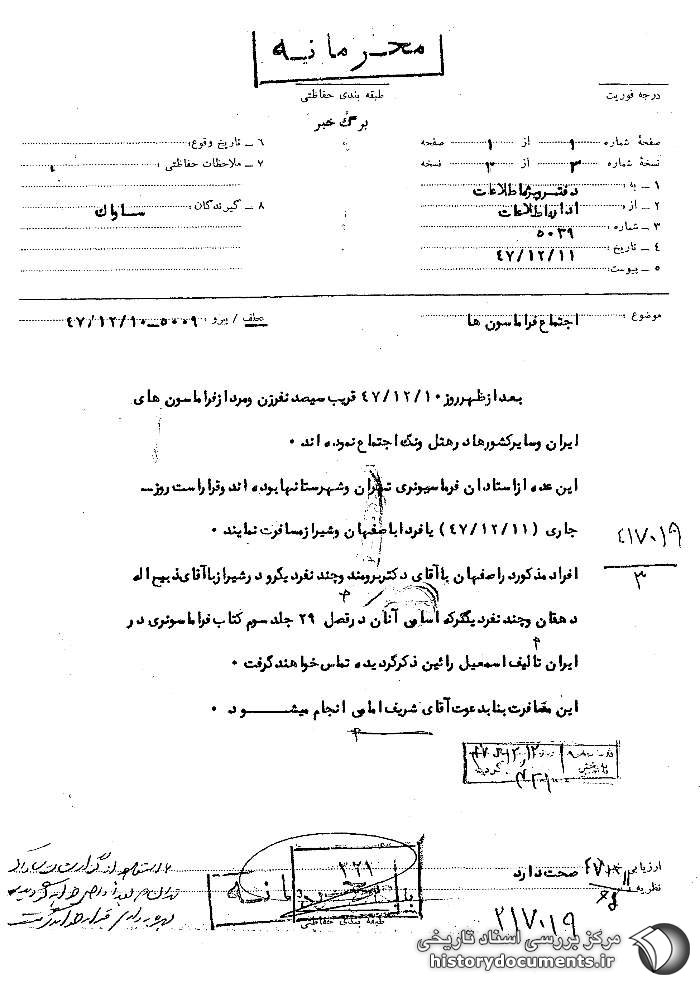 محرمانه
طبقه بندی حفاظتی
درجه فوریت
برگ خبر
صفحهٔ شماره ۱ از ۱ صفحه
نسخهٔ شماره ۳ از ۳ نسخه
۱ ـ به : دفتر ویژه اطلاعات
۲ ـ از : اداره اطلاعات
۳ ـ شماره : ۵۰۳۹
۴ ـ تاریخ : ۴۷/۱۲/۱۱
۵ ـ پیوست :
۶ ـ تاریخ وقوع :
۷ ـ ملاحظات حفاظتی :
۸ ـ گیرندگان : ساواك
موضوع : اجتماع فراماسون ها
عطف / پیرو : ۵۰۰۹ـ ۴۷/۱۲/۱۰
بعد از ظهر روز ۴۷/۱۲/۱۰ قریب سیصد نفر زن و مرد از فراماسون های
ایران و سایر کشورها در هتل ونك اجتماع نموده اند ۰
این عده از استادان فرماسیونری تهران و شهرستانها بوده اند و قرار است روز
جاری (۴۷/۱۲/۱۱) یا فردا باصفهان و شیراز مسافرت نمایند ۰
افراد مذکور در اصفهان با آقای دکتر برومند و چند نفر دیگر و در شیراز با آقای ذبیح اله
دهقان و چند نفر دیگر که اسامی آنان در فصل ۲۹ جلد سوم کتاب فراماسونری در
ایران تالیف اسمعیل رائین ذکر گردیده تماس خواهند گرفت ۰
این مسافرت بنا بدعوت آقای شریف امامی انجام میشــود ۰
۲۱۷۰۱۹
۳
ارزیابی صحت دارد
نظریه
۳۲۱
طبقه بندی حفاظتی
۲۱۷۰۱۹
مرکز بررسی اسناد تاریخی
historydocuments.ir